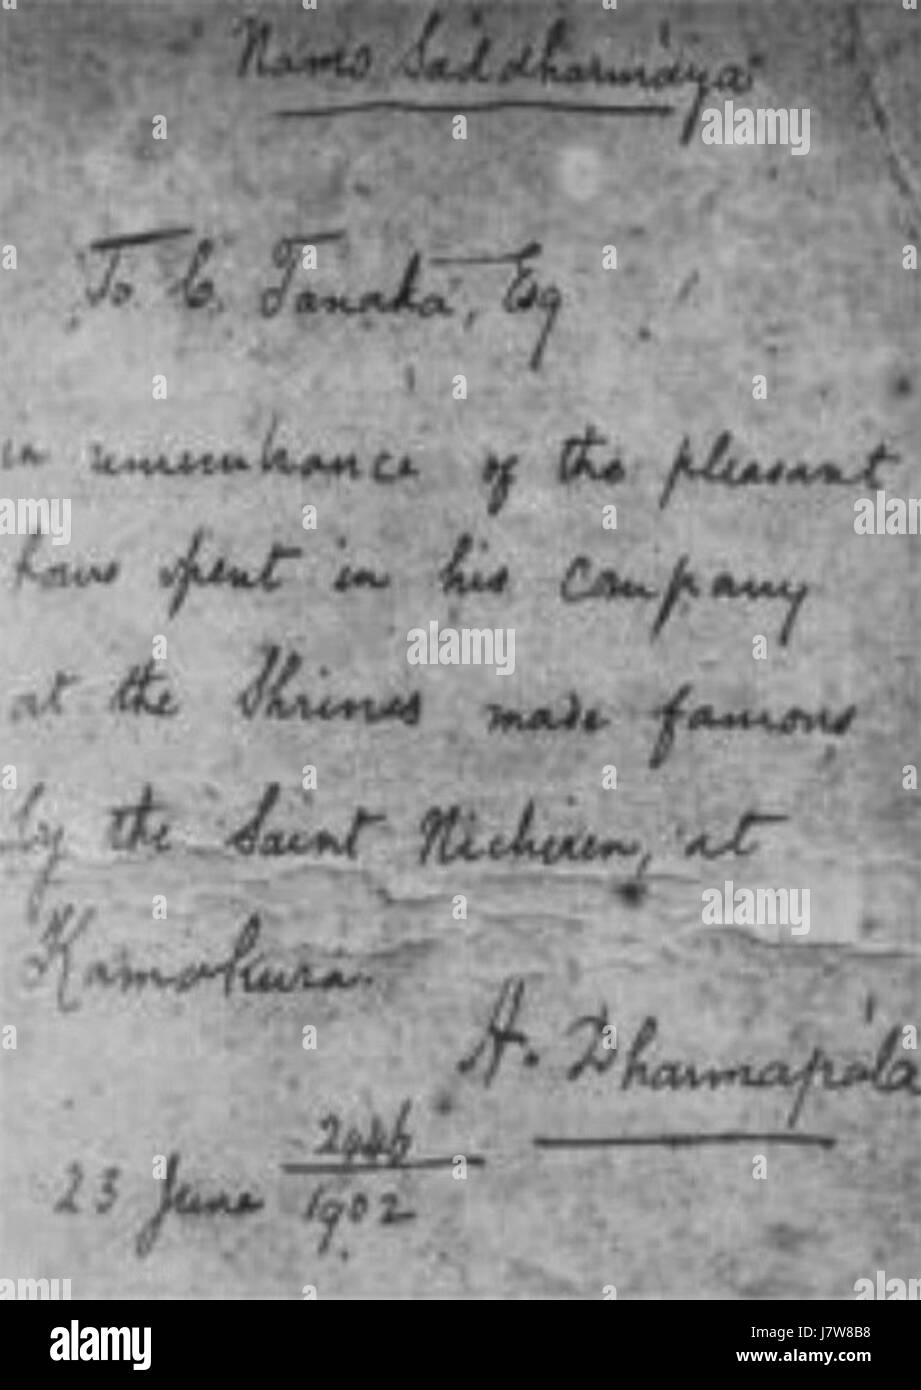 "Namo Saddharmáya"
To C. Tanaka, Esq
in remembrance of the pleasant
hours spent in his company
at the Shrines made famous
by the Saint Nichiren, at
Kamakura.
A. Dharmapála
23 June 2446
1902
alamy
Image ID: J7W8B8
www.alamy.com